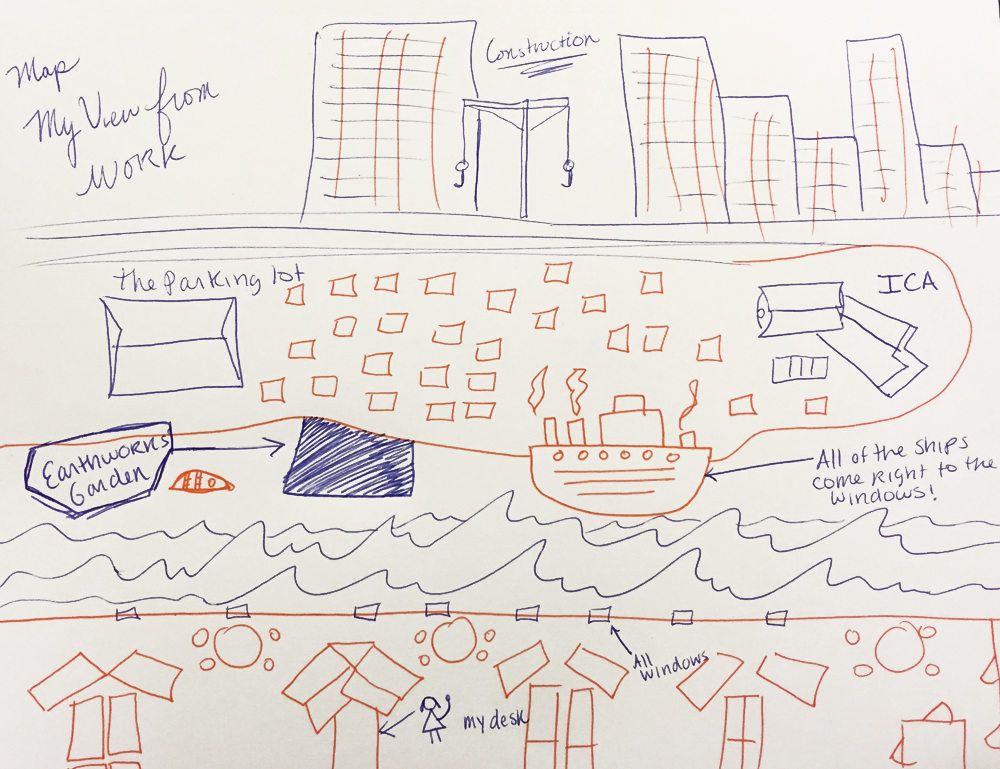 Map
My View from
Work
Construction
the Parking lot
ICA
Earthworks
Garden
All of the ships
come Right to the
windows!
All
windows
my desk